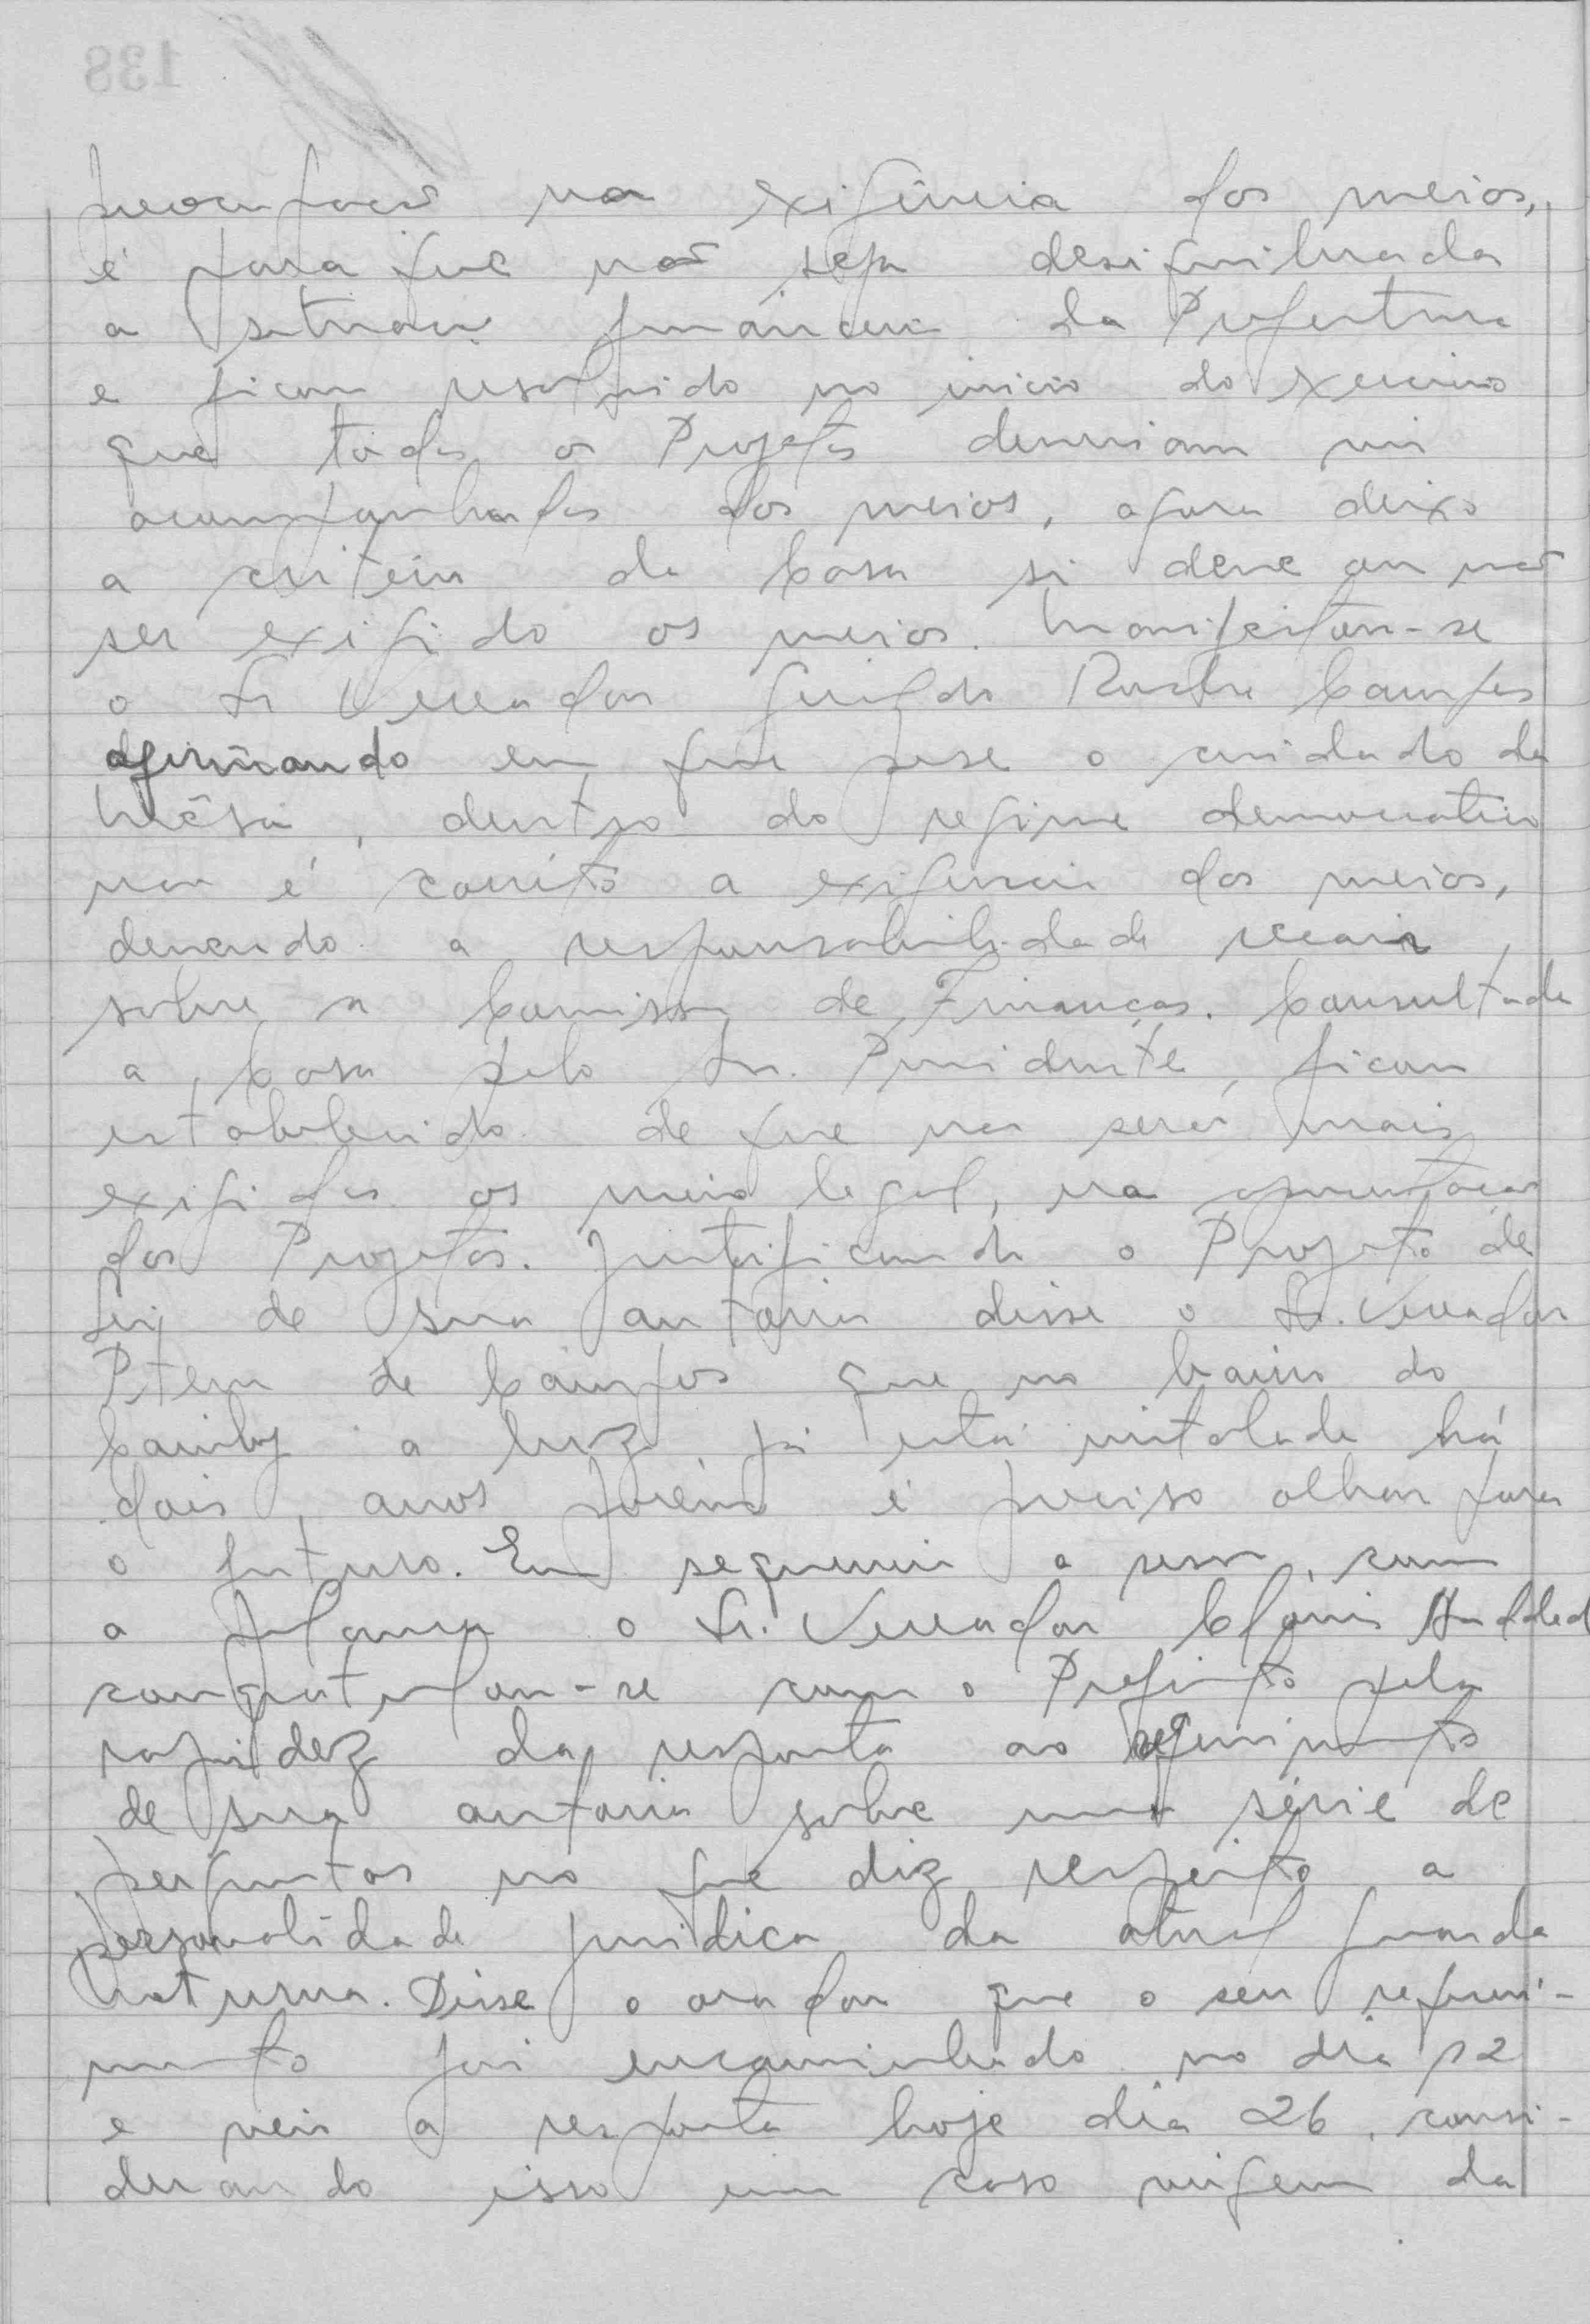 preocupação na exigência dos meios,
é para que não seja desiquilibrada
a situação financeira da Prefeitura
e ficou resolvido no inicio do exercicio
que todos os Projetos deveriam vir
acompanhados dos meios, agora deixo
a critério da Casa si deve ou não
ser exigido os meios. Manifestou-se
o Sr Vereador Campos
afirmando em que pese o cuidado da
Mêsa, dentro do regime democratico
não é correto a exigencia dos meios,
devendo a responsabilidade recair
sobre a Comissão de Finanças. Consultada
a Casa pelo Sr. Presidente, ficou
estabelecido de que não será mais
exigidos os meio legal, na apresentação
dos Projetos. Justificando o Projeto de
Lei de sua autoria disse o Sr. Vereador
de Campos que no bairro do
a luz já está instalada há
dois anos porém é preciso olhar para
o futuro. Em sequencia a sessão, com
a palavra o Sr. Vereador Clóvis Haddad
congratulou-se com o Prefeito pela
rapidez da resposta ao requerimento
de sua autoria sobre uma série de
perguntas no que diz respeito a
personalidade juridica da atual guarda
noturna. Disse o orador que o seu requeri-
mento foi encaminhado no dia 12
e veio a resposta hoje dia 26, consi-
derando isso um caso virgem da